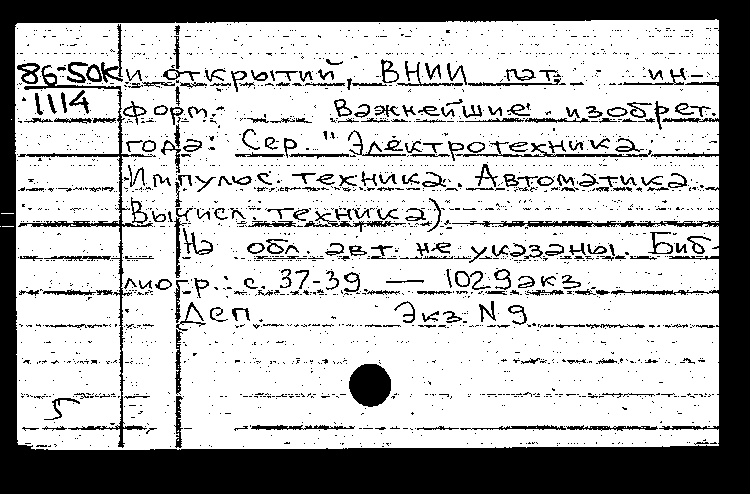 86-50К и открытий, ВНИИ пат. ин-
1114 форм. Важнейшие изобрет.
года: Сер. "Электротехника.
Импульс. техника. Автоматика
Вычисл. техника).
На обл. авт. не указаны. Биб-
лиогр.: с. 37-39 — 1029 экз.
Деп. Экз. N 9
5